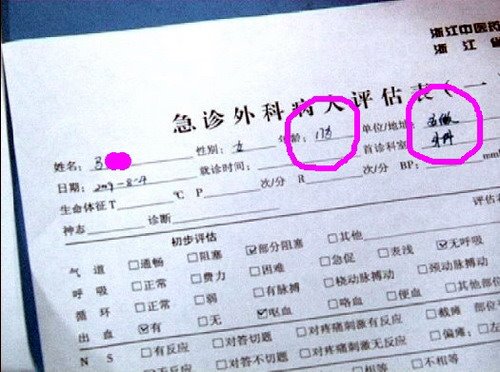 浙江中医药
浙江省
急诊外科病人评估表(一
姓名: 性别:女 年龄: 单位/地址:
日期: 就诊时间: 首诊科室:外科
生命体征T ℃ P 次/分 R 次/分 BP: mm
神志 诊断
初步评估 评估
气道 □通畅 □阻塞 ☑部分阻塞 □其他
呼吸 □正常 □费力 □困难 □急促 □表浅 ☑无呼吸
循环 □正常 □弱 □有脉搏 □桡动脉搏动 □颈动脉搏动
出血 ☑有 □无 ☑呕血 □咯血 □便血 □其他部位
NS □有反应 □对答切题 □对疼痛刺激有反应 □截瘫 部位
□无反应 □对答不切题 □对疼痛刺激无反应 □偏瘫:□左
□相等 □不相等